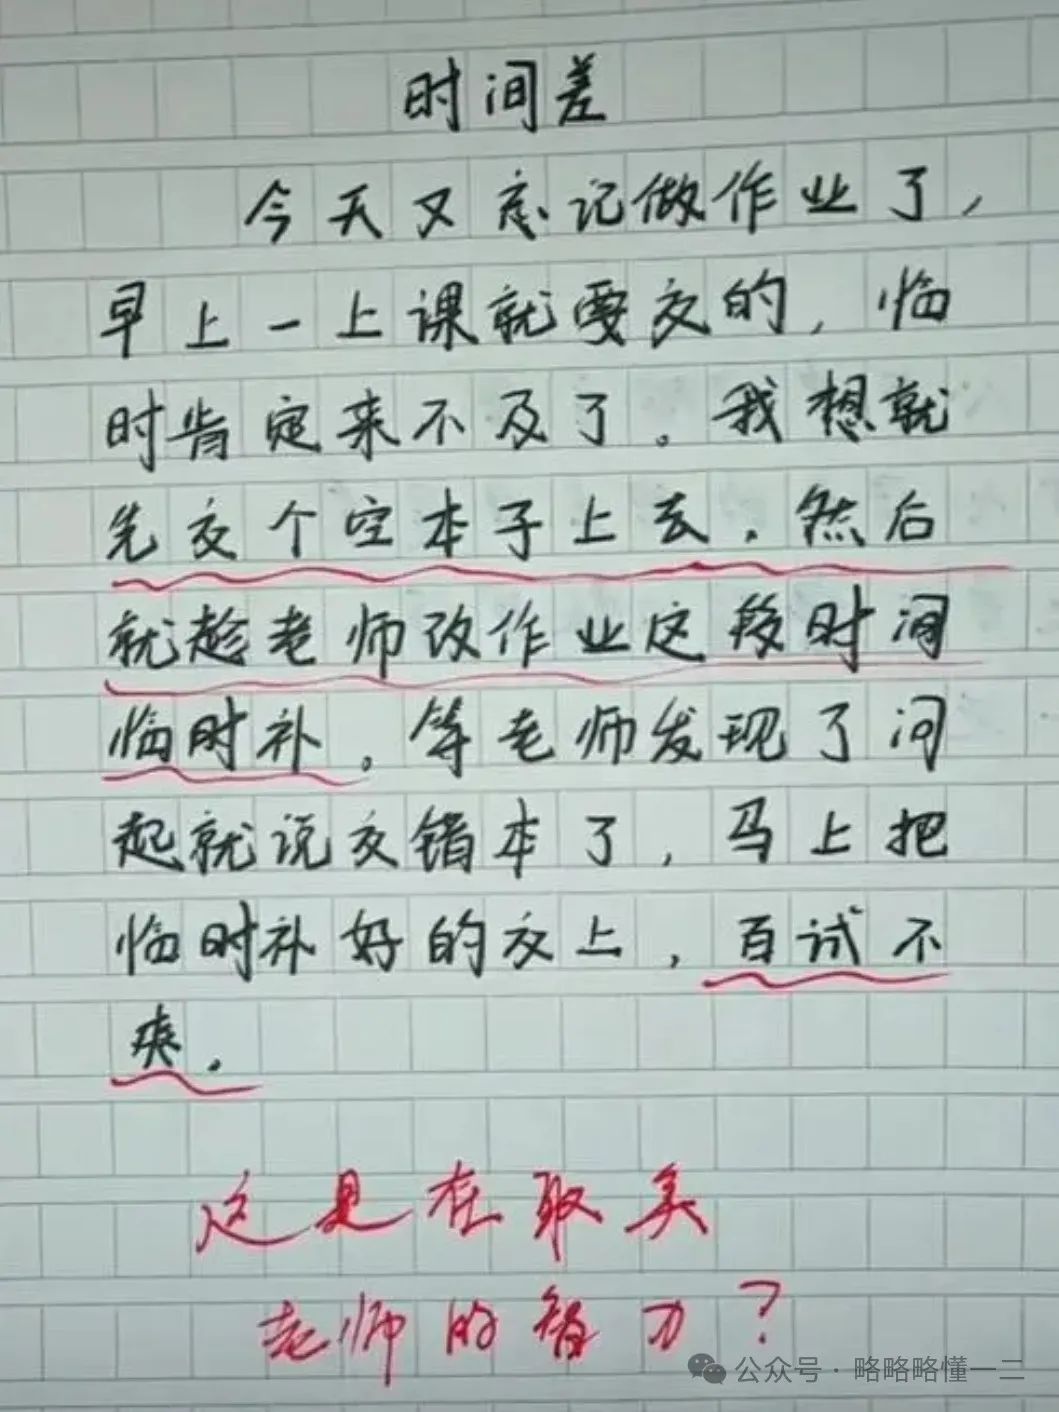 时间差
今天又忘记做作业了，
早上一上课就要交的，临
时肯定来不及了。我想就
先交个空本子上去，然后
就趁老师改作业这段时间
临时补。等老师发现了问
起就说交错本了，马上把
临时补好的交上，百试不
爽。
这是在取笑
老师的智力？
公众号·略略略懂一二